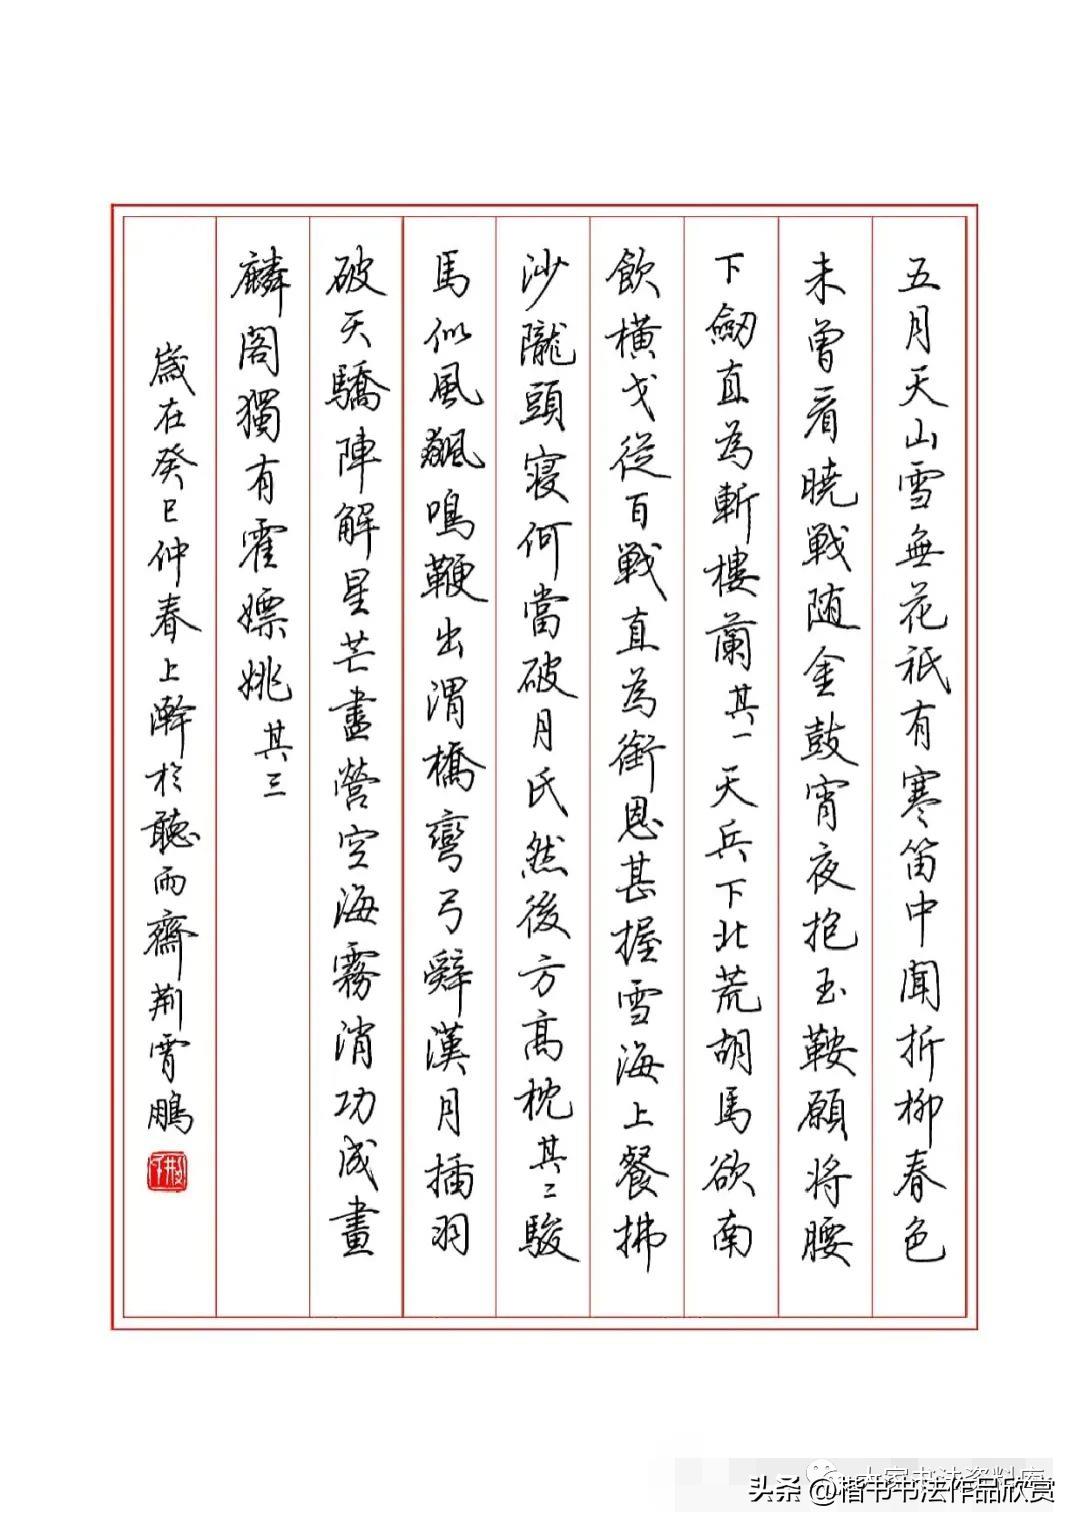 五月天山雪無花祇有寒笛中聞折柳春色
未曾看曉戰随金鼓宵夜抱玉鞍願将腰
下劒直為斬樓蘭其一天兵下北荒胡馬欲南
飲橫戈從百戰直為銜恩甚握雪海上餐拂
沙隴頭寢何當破月氏然後方高枕其二駿
馬似風飆鳴鞭出渭橋彎弓辭漢月插羽
破天驕陣解星芒盡營空海霧消功成畫
麟閣獨有霍嫖姚其三
歲在癸巳仲春上澣於聽雨齋荆霄鵬
大家书法资料库
头条 @楷书书法作品欣赏